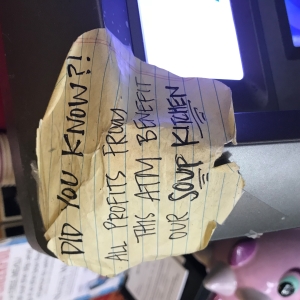 DID YOU KNOW?!
ALL PROFITS FROM
THIS ATM BENEFIT
OUR SOUP KITCHEN